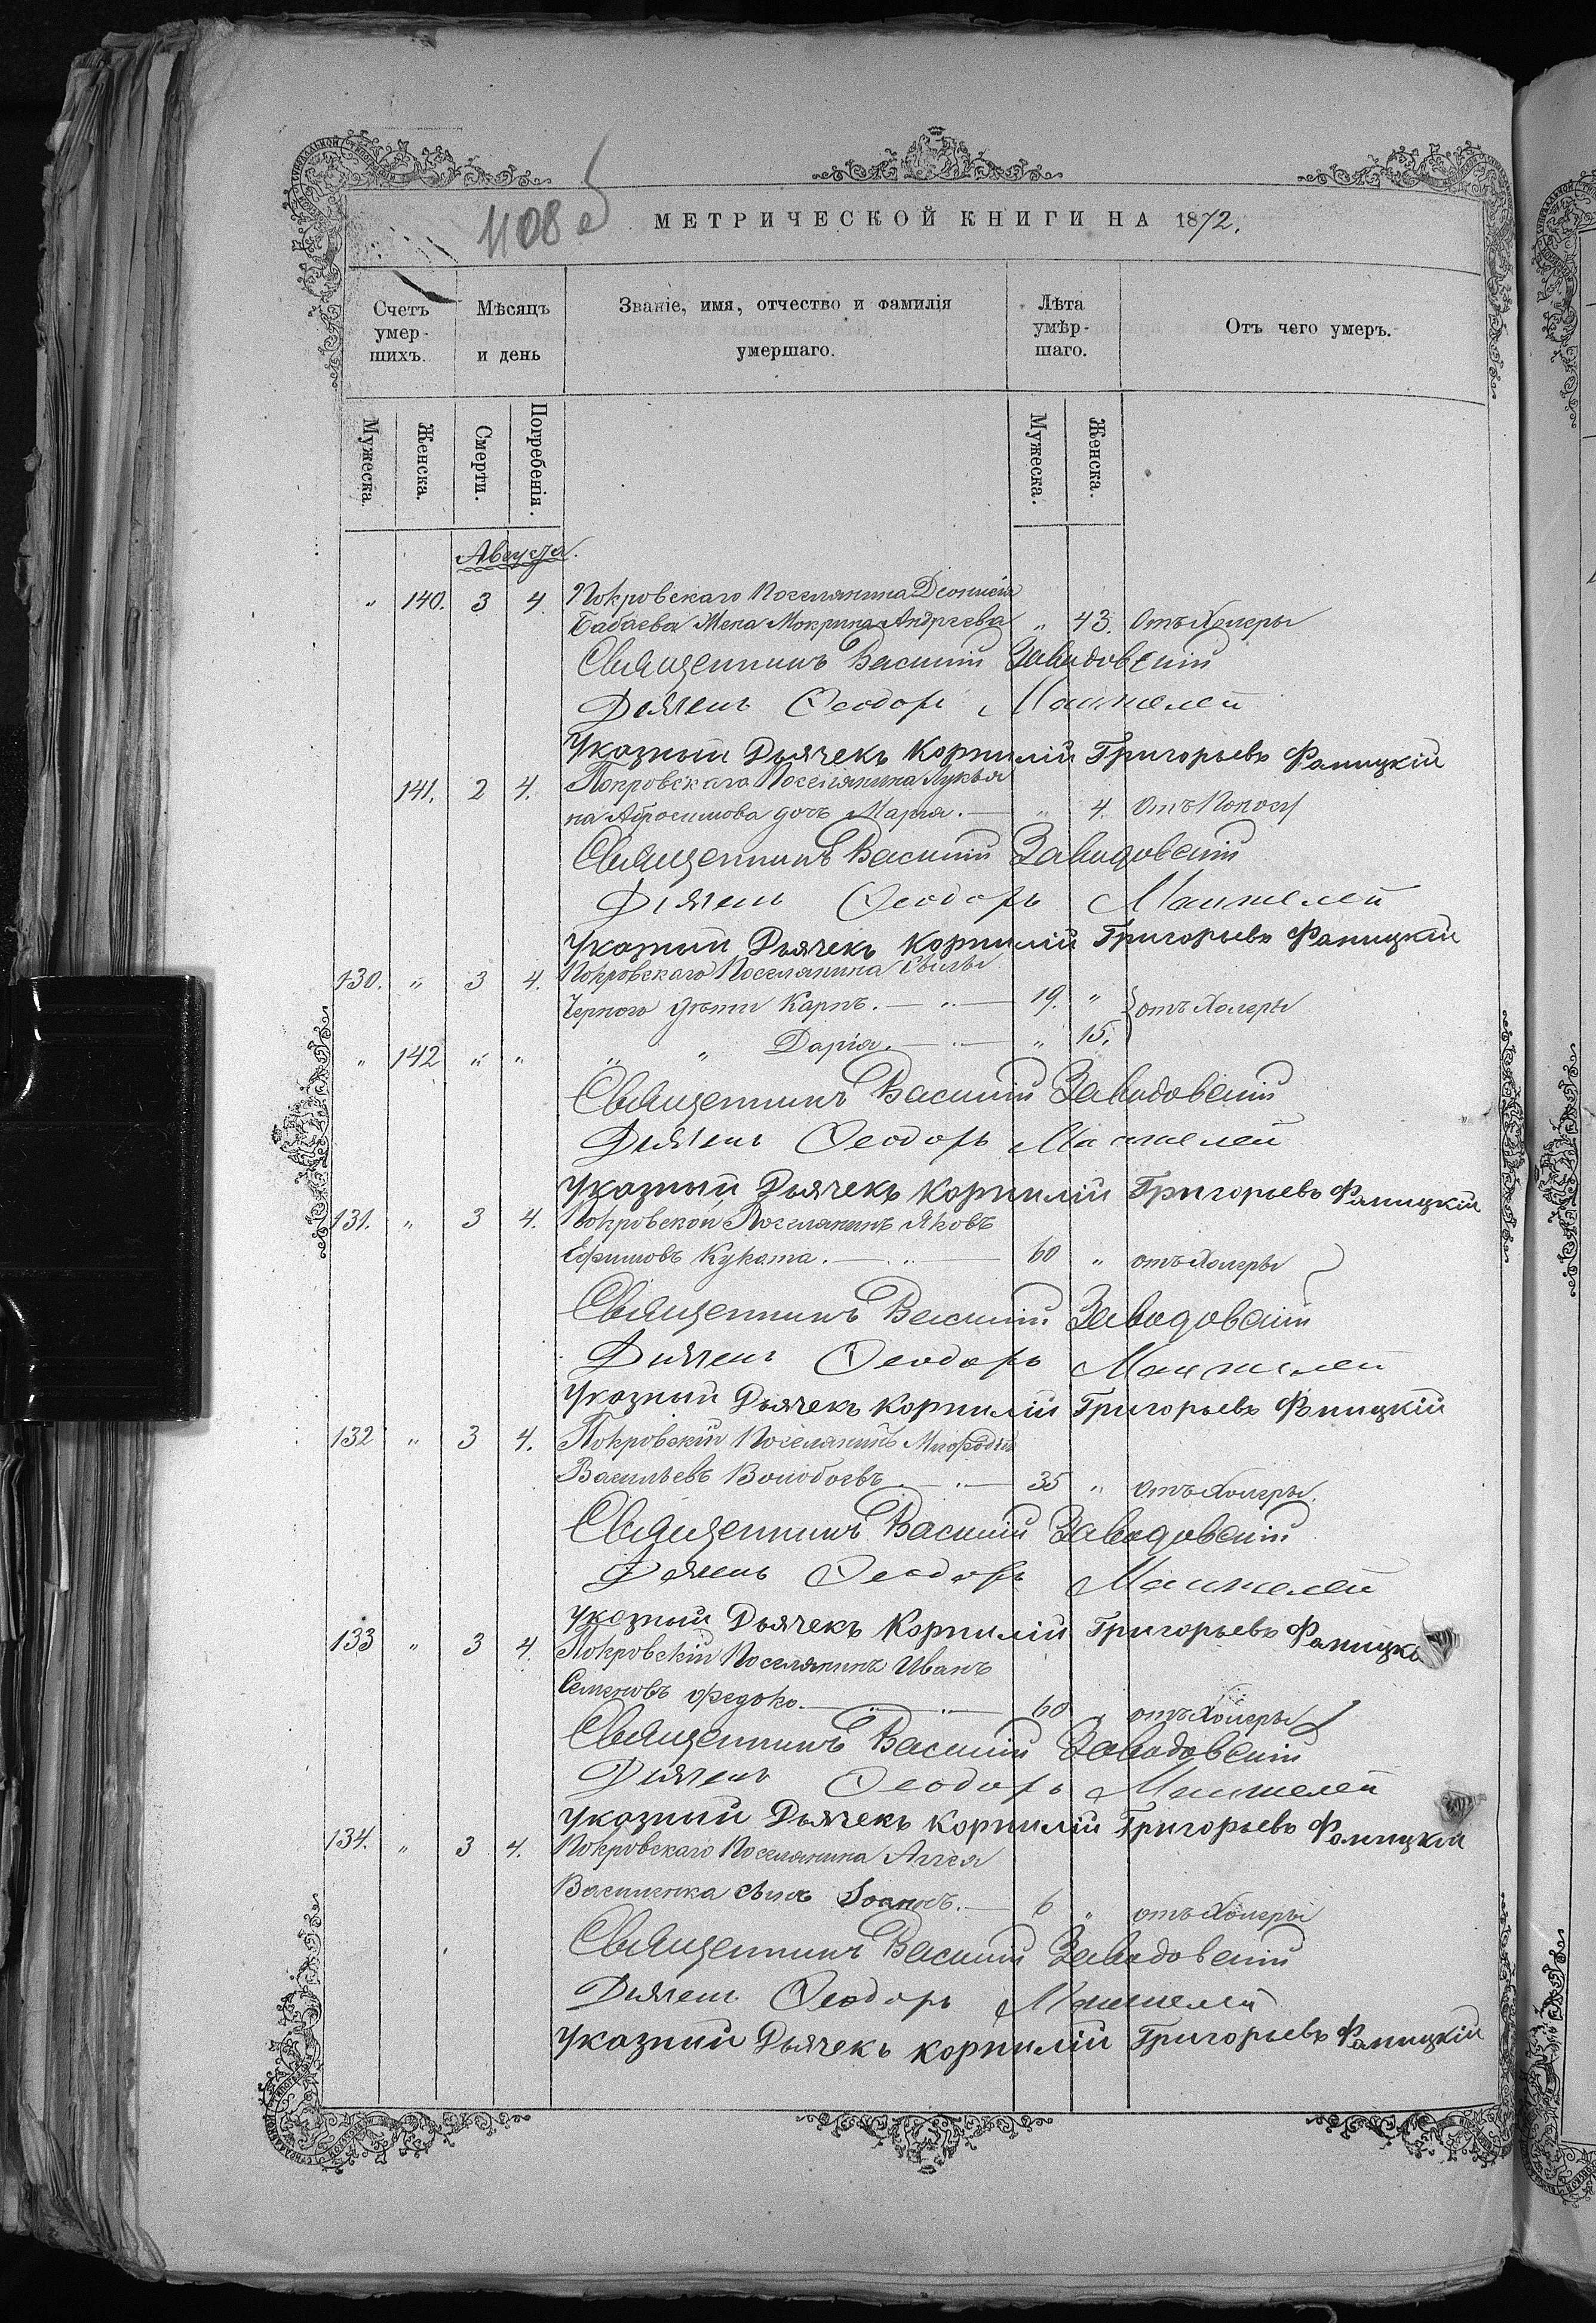 1108 об
МЕТРИЧЕСКОЙ КНИГИ НА 1872.
Счетъ умер-шихъ.
Мѣсяцъ и день
Званіе, имя, отчество и фамилія умершаго.
Лѣта умѣр-шаго.
Отъ чего умеръ.
Мужеска.
Женска.
Смерти.
Погребенія.
Мужеска.
Женска.
Августа.
" 140. 3 4. Покровскаго Поселянина Деонисія
Бабаева Жена Мокрина Андреева " 43. Отъ Холеры
Священникъ Василий Завадовскій
Діяконъ Ѳеодоръ
Указный Дьячекъ Корнилій Григорьевъ Фаницкій
141. 2 4. Покровскаго Поселянина Лукья
на Абросимова дочь Марія. " 4. Отъ Поноса
Священникъ Василий Завадовскій
Діяконъ Ѳеодоръ
Указный Дьячекъ Корнилій Григорьевъ Фаницкій
130. " 3 4. Покровскаго Поселянина
Черного дѣти Карпъ. " 19. " отъ Холеры
" 142 " " " " Дарія. " " 15.
Священникъ Василий Завадовскій
Діяконъ Ѳеодоръ
Указный Дьячекъ Корнилій Григорьевъ Фаницкій
131. " 3 4. Покровской Поселянинъ Яковъ
Ефимовъ Куката. " 60 " отъ Холеры
Священникъ Василий Завадовскій
Діяконъ Ѳеодоръ
Указный Дьячекъ Корнилій Григорьевъ Фаницкій
132 " 3 4. Покровскій Поселянинъ
Васильевъ Волобоевъ " 35 " Отъ Холеры.
Священникъ Василий Завадовскій
Діяконъ Ѳеодоръ
Указный Дьячекъ Корнилій Григорьевъ Фаницкі
133 " 3 4. Покровскій Поселянинъ Иванъ
Семеновъ Федоко. 60 " отъ Холеры
Священникъ Василий Завадовскій
Діяконъ Ѳеодоръ
Указный Дьячекъ Корнилій Григорьевъ Фаницкій
134. " 3 4. Покровскаго Поселянина Аггея
Василенка сынъ Іоаннъ. 6 " отъ Холеры
Священникъ Василий Завадовскій
Діяконъ Ѳеодоръ
Указный Дьячекъ Корнилій Григорьевъ Фаницкій